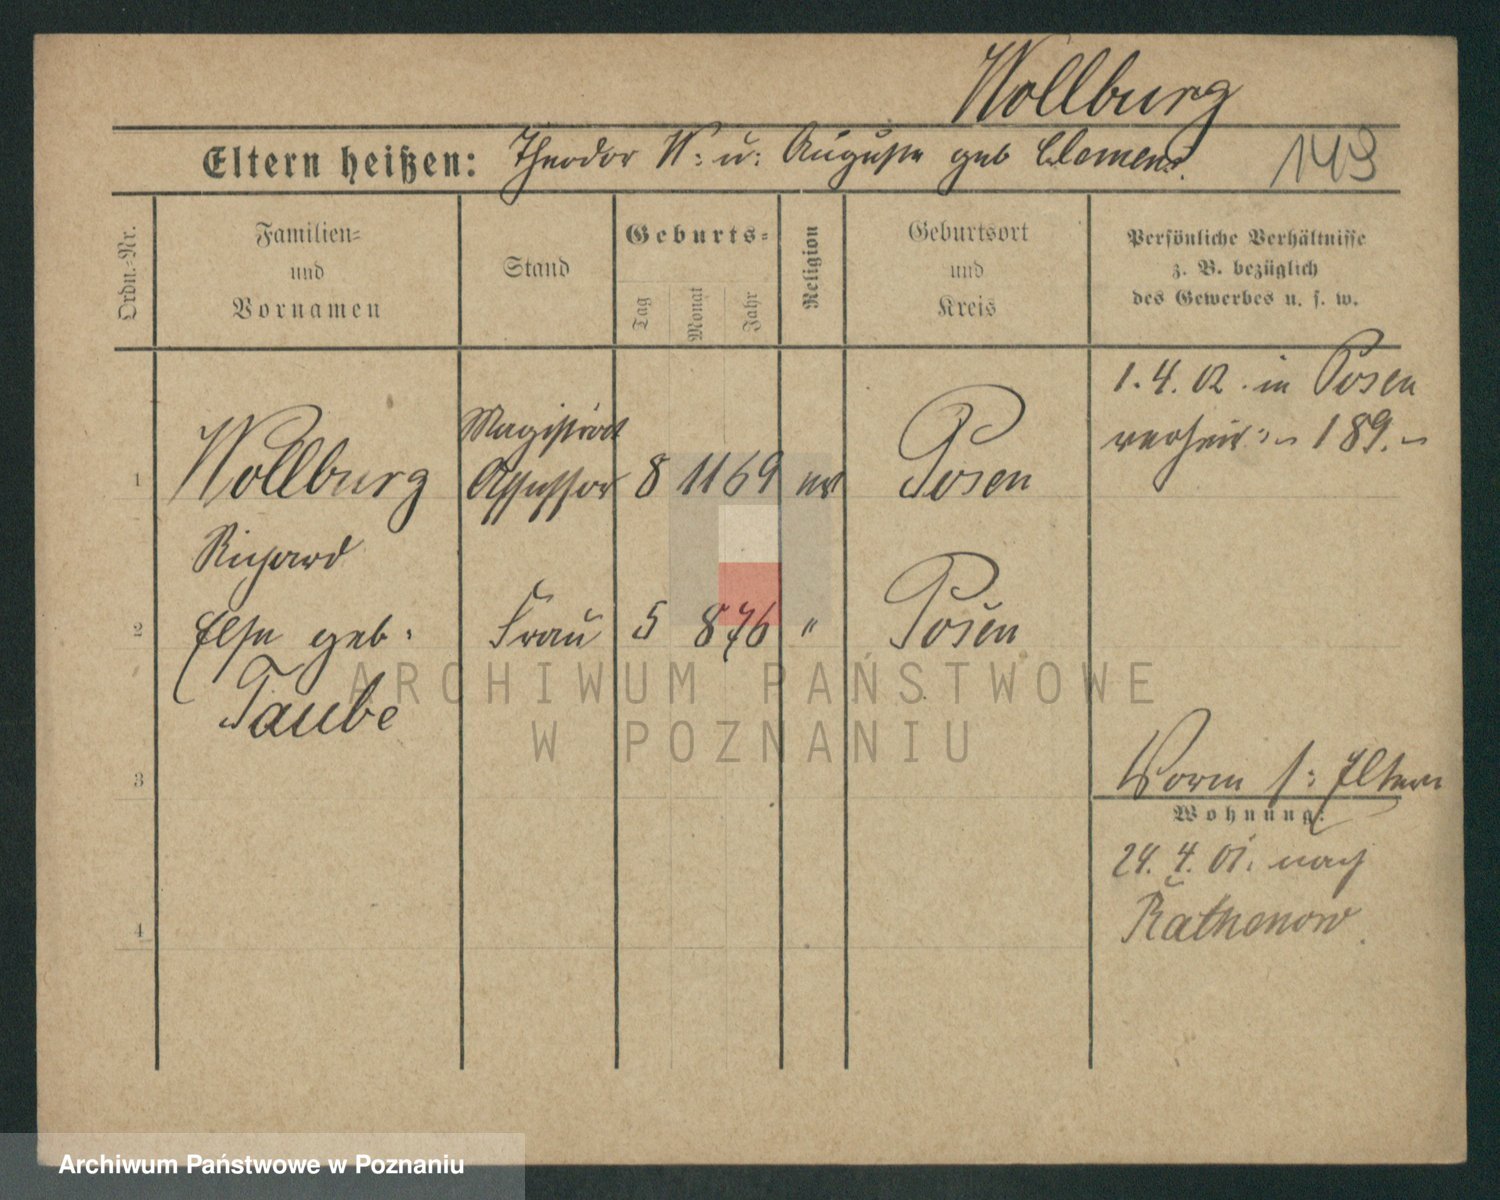 Wollburg
Eltern heißen: Theodor W: u: Auguste geb Clemens. 149
Ordn.-Nr.
Familien-
und
Vornamen
Stand
Geburts-
Tag
Monat
Jahr
Religion
Geburtsort
und
Kreis
Persönliche Verhältnisse
z. B. bezüglich
des Gewerbes u. s. w.
1.4.02. in Posen
verheir: 189.
1 Wollburg Magistrat Assessor 8 11 69 ev Posen
Richard
2 Else geb. Frau 5 8 76 " Posen
Taube
3
Worm s: Eltern
Wohnung:
24.4.01. nach
Rathenow.
4
ARCHIWUM PAŃSTWOWE
W POZNANIU
Archiwum Państwowe w Poznaniu